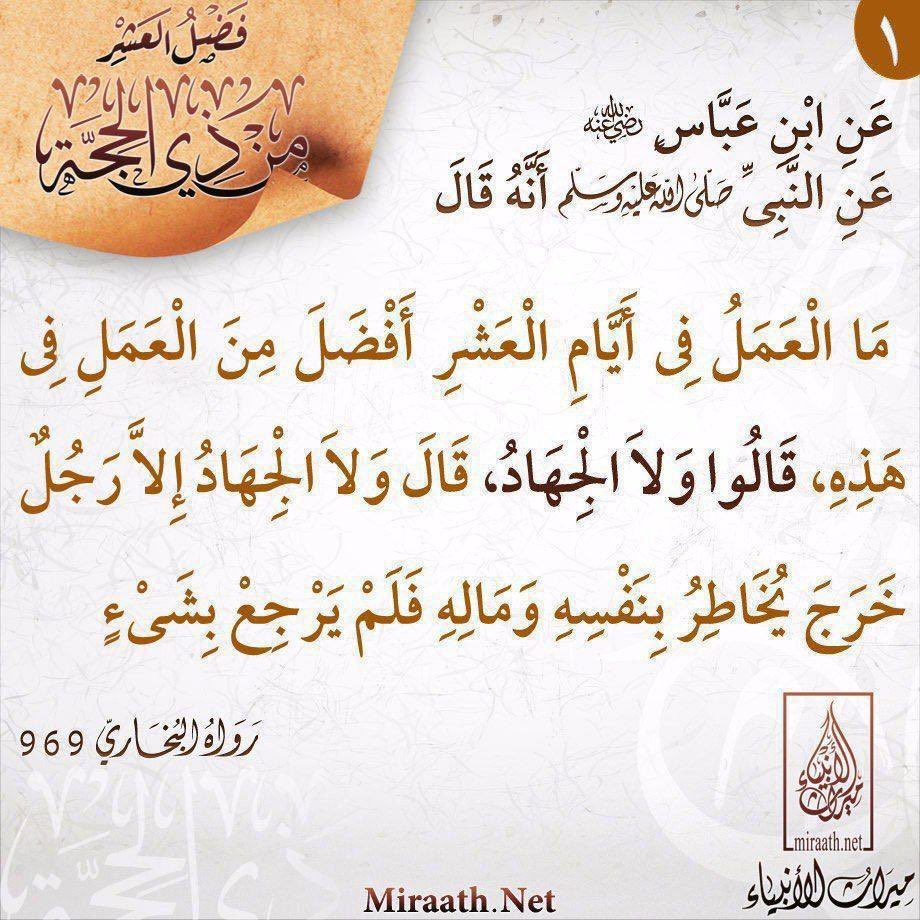 فَضْلُ العَشْرِ
مِنْ ذِي الحِجَّةِ
١
عَنِ ابْنِ عَبَّاسٍ رضي الله عنه
عَنِ النَّبِىِّ صَلَّى اللهُ عَلَيْهِ وَسَلَّم أَنَّهُ قَالَ
مَا الْعَمَلُ فِى أَيَّامِ الْعَشْرِ أَفْضَلَ مِنَ الْعَمَلِ فِى
هَذِهِ، قَالُوا وَلاَ الْجِهَادُ، قَالَ وَلاَ الْجِهَادُ إِلاَّ رَجُلٌ
خَرَجَ يُخَاطِرُ بِنَفْسِهِ وَمَالِهِ فَلَمْ يَرْجِعْ بِشَىْءٍ
رَوَاهُ البُخَارِيّ 969
ميراث الأنبياء
miraath.net
ميراث الأنبياء
Miraath.Net